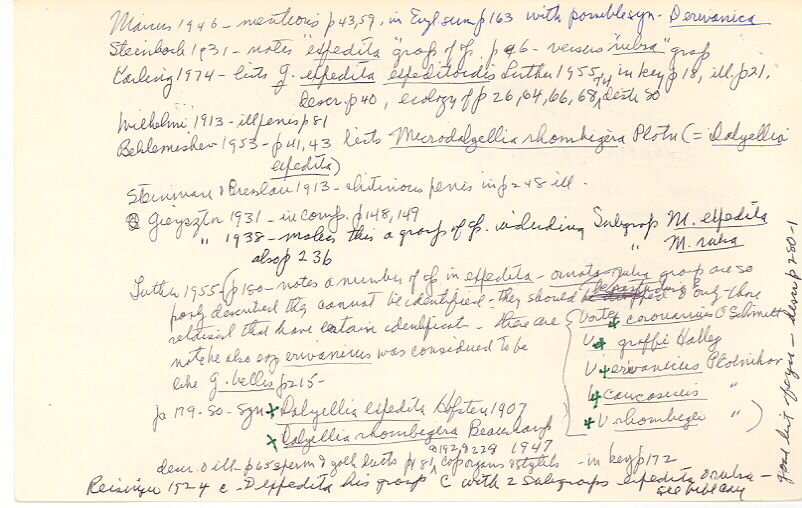 Marcus 1946 - mentions p43,59, in Engl sum p163 with possible syn - Derivanica
Steinbock 1931 - notes "expedita" group of sp. p46 - versus "rubra" group
Karling 1974 - lists G. expedita expeditoides Luther 1955, in key p18, ill. p21,
descr. p40, ecology of p 26, 64, 66, 68, 74, distr 80
Wilhelmi 1913 - ill penis p81
Beklemishev 1953 - p41,43 lists Microdalyellia rhombigera Plotn (= Dalyellia
expedita)
Steinmann & Bresslau 1913 - chitinous penis in p248 ill.
Gieysztor 1931 - in comp. p148,149
" 1938 - makes this a group of sp. including Subgroup M. expedita
also p 236 " M. rubra
Luther 1955 - (p180 - notes a number of sp in expedita - ornata rubra group are so
poorly described they cannot be identified - they should be dropped & only those
retained that have certain identificat - These are Vortex coronarius O Schmidt
notes he also says erivanicus was considered to be V graffi Hallez
like G. bellis p215 - V erivanicus Plotnikov
V caucasicus "
p 179-80 - Syn + Dalyellia expedita Hofsten 1907 V rhombigera " )
+ Dalyellia rhombigera Beauchamp 1947
descr. & ill p65 sperm & yolk ducts p181, 192, 222 cop organs & stylets - in key p172
Reisinger 1924 c - D expedita his group C with 2 subgroups expedita & rubra -
see bibl card
good list of syn - descr p 280-1